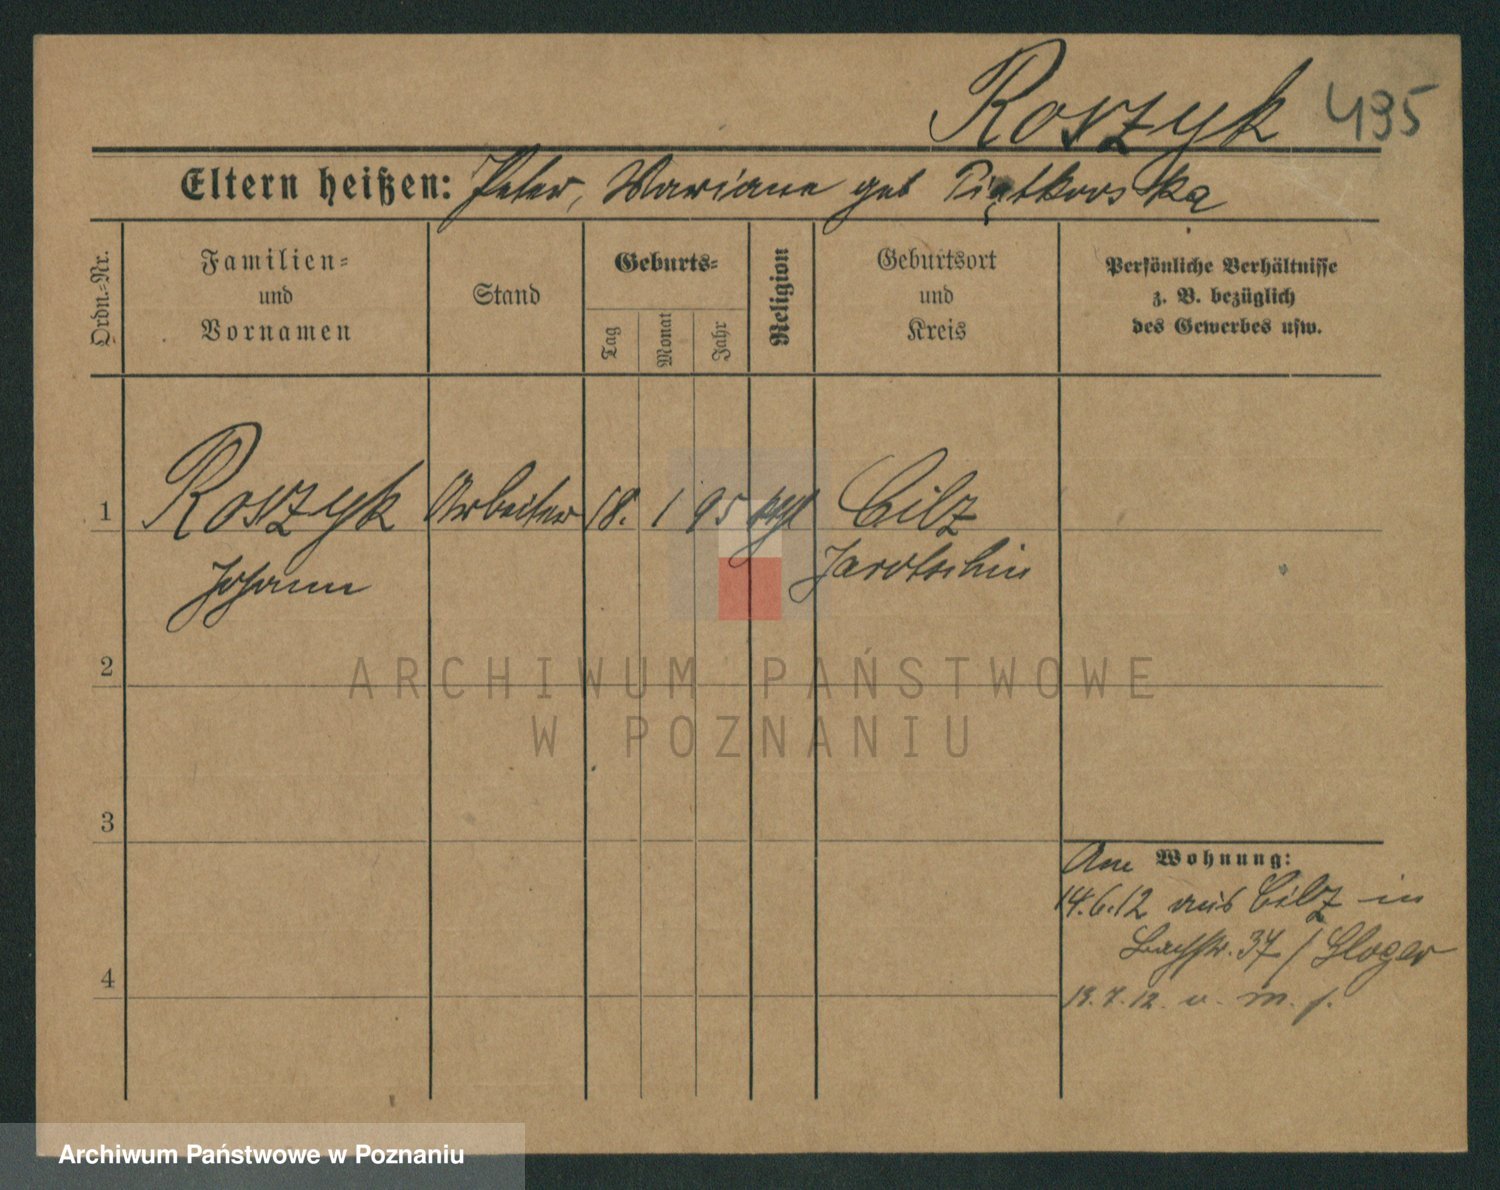 Roszyk 495
Eltern heißen: Peter, Mariane geb Piątkowska
Ordn.-Nr.
Familien-
und
Vornamen
Stand
Geburts-
Tag
Monat
Jahr
Religion
Geburtsort
und
Kreis
Persönliche Verhältnisse
z. B. bezüglich
des Gewerbes usw.
1 Roszyk Arbeiter 18. 1 95 kath Cilz
Johann Jarotschin
2
ARCHIWUM PAŃSTWOWE
W POZNANIU
3
Wohnung:
Am
14.6.12 aus Cilz in
Bachstr. 37 / Gloger
4
19.7.12. u. m. f.
Archiwum Państwowe w Poznaniu